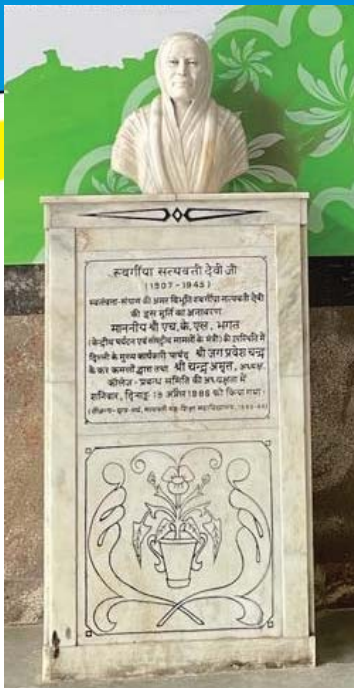 स्वर्गीया सत्यवती देवी जी
(1907-1945)
स्वतंत्रता-संग्राम की अमर विभूति स्वर्गीया सत्यवती देवी
की इस मूर्ति का अनावरण
माननीय श्री एच. के. एल. भगत
(केन्द्रीय पर्यटन एवं संसदीय मामलों के मंत्री) की उपस्थिति में
दिल्ली के मुख्य कार्यकारी पार्षद श्री जग प्रवेश चन्द्र
के कर कमलों द्वारा तथा श्री चन्द्र अमृत, अध्यक्ष
कॉलेज-प्रबन्ध समिति की अध्यक्षता में
शनिवार, दिनाङ्क 19 अप्रैल 1986 को किया गया।
सत्यवती सह-शिक्षा महाविद्यालय